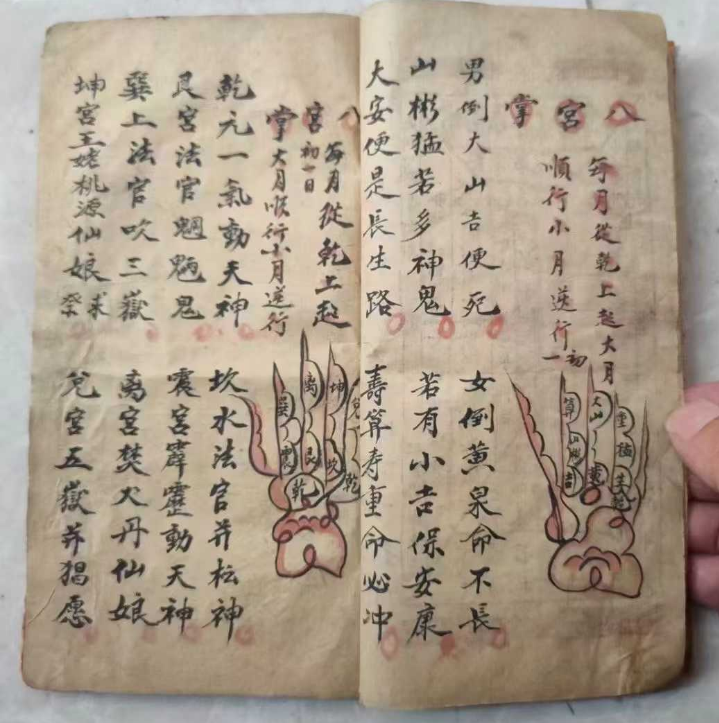 八宮掌
每月從乾上起大月
順行小月逆行
初一
男倒大山吉便死
女倒黃泉命不長
山彬猛若多神鬼
若有小吉保安康
大安便是長生路
壽算寿重命必冲
大山
算
八宮掌
每月從乾上起
初一日
大月順行小月逆行
乾元一氣動天神
坎水法官并枟神
艮宮法官魍魎鬼
震宮霹靂動天神
巽上法官吹三嶽
离宮焚火丹仙娘
坤宮王姥桃源仙娘
兌宮五嶽并猖愿
坤
离
巽
兌
震
艮
坎
乾
乾